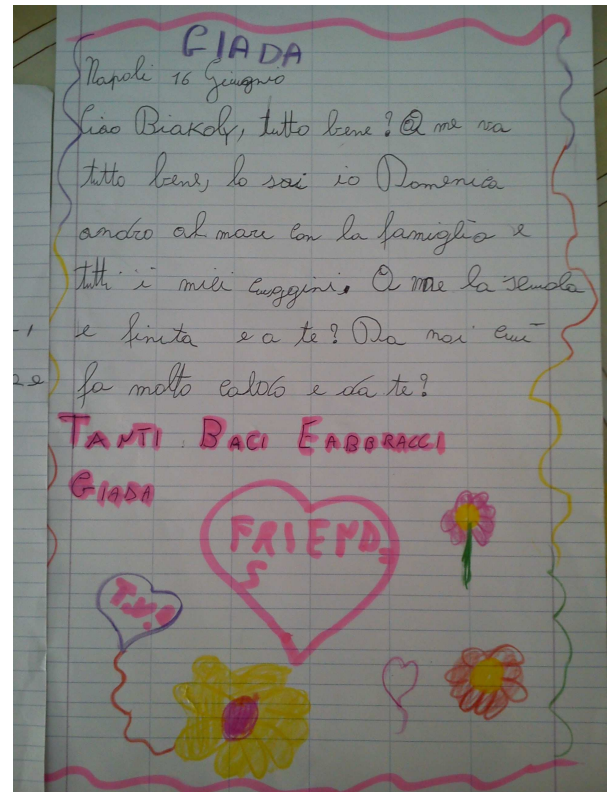 GIADA
Napoli 16 Giugnio
Ciao Biakoly, tutto bene? A me va
tutto bene, lo sai io Domenica
andro al mare con la famiglia e
tutti i miei cuggini. A me la scuola
e finita e a te? Da noi cui
fa molto caldo e da te?
TANTI BACI E ABBRACCI
GIADA
FRIEND=
S
T.V.B